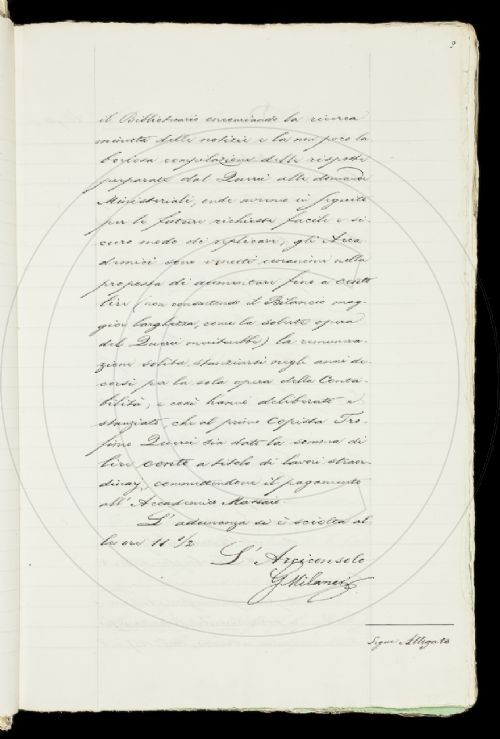 9
il Bibliotecario encomiando la ricerca
minuta delle notizie e la non poco la
boriosa compilazione delle risposte
preparate dal Querci alle domande
Ministeriali, onde avremo in seguito
per le future richieste facile e si-
curo modo di replicare, gli Acca
demici sono venuti unanimi nella
proposta di aumentare fino a cento
lire (non consentendo il Bilancio mag-
gior larghezza, come la solerte opera
del Querci meriterebbe) la remunera-
zione solita stanziarsi negli anni de-
corsi per la sola opera della Conta-
bilità, e così hanno deliberato e
stanziato, che al primo Copista
Querci sia data la somma di
lire cento a titolo di lavori straor-
dinarj, commettendone il pagamento
all'Accademico Massaio.
L'adunanza si è sciolta al
le ore 11 1/2
L'Arciconsolo
G Milanesi
Segue Allegato